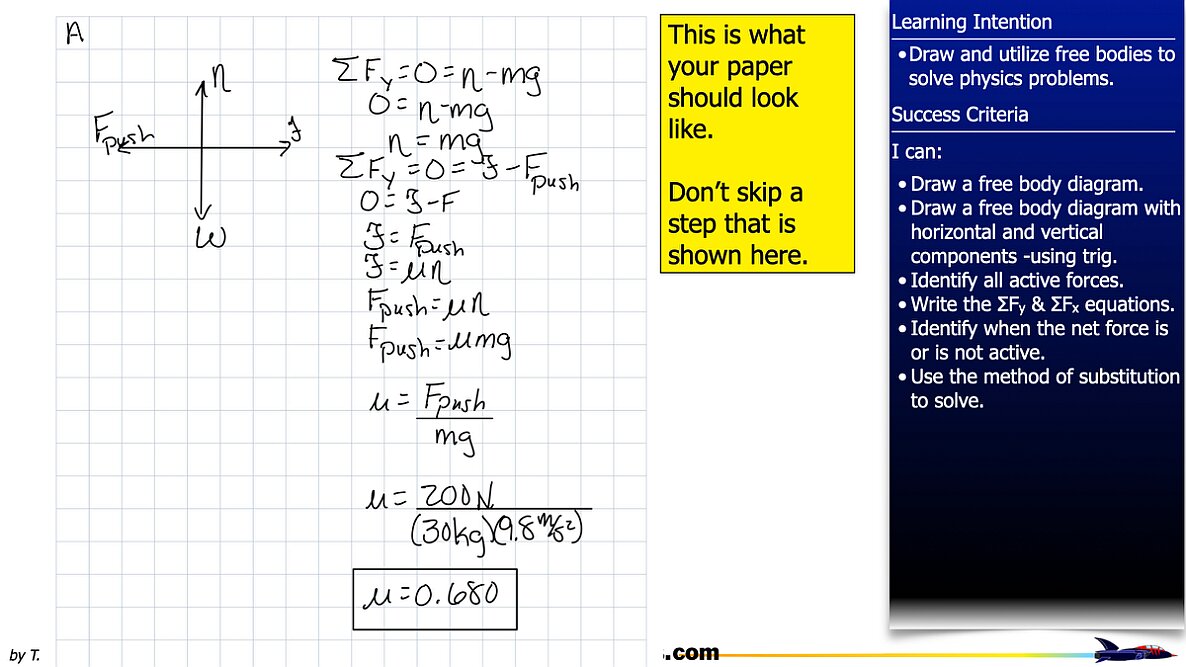 A
n
F push
f
W
ΣFy = 0 = n - mg
0 = n - mg
n = mg
ΣFy = 0 = f - F push
0 = f - F
f = F push
f = μn
F push = μn
F push = μmg
μ = F push
mg
μ = 200N
(30kg)(9.8 m/s²)
μ = 0.680
This is what
your paper
should look
like.
Don’t skip a
step that is
shown here.
Learning Intention
•Draw and utilize free bodies to
solve physics problems.
Success Criteria
I can:
•Draw a free body diagram.
•Draw a free body diagram with
horizontal and vertical
components -using trig.
•Identify all active forces.
•Write the ΣFy & ΣFx equations.
•Identify when the net force is
or is not active.
•Use the method of substitution
to solve.
by T.
.com